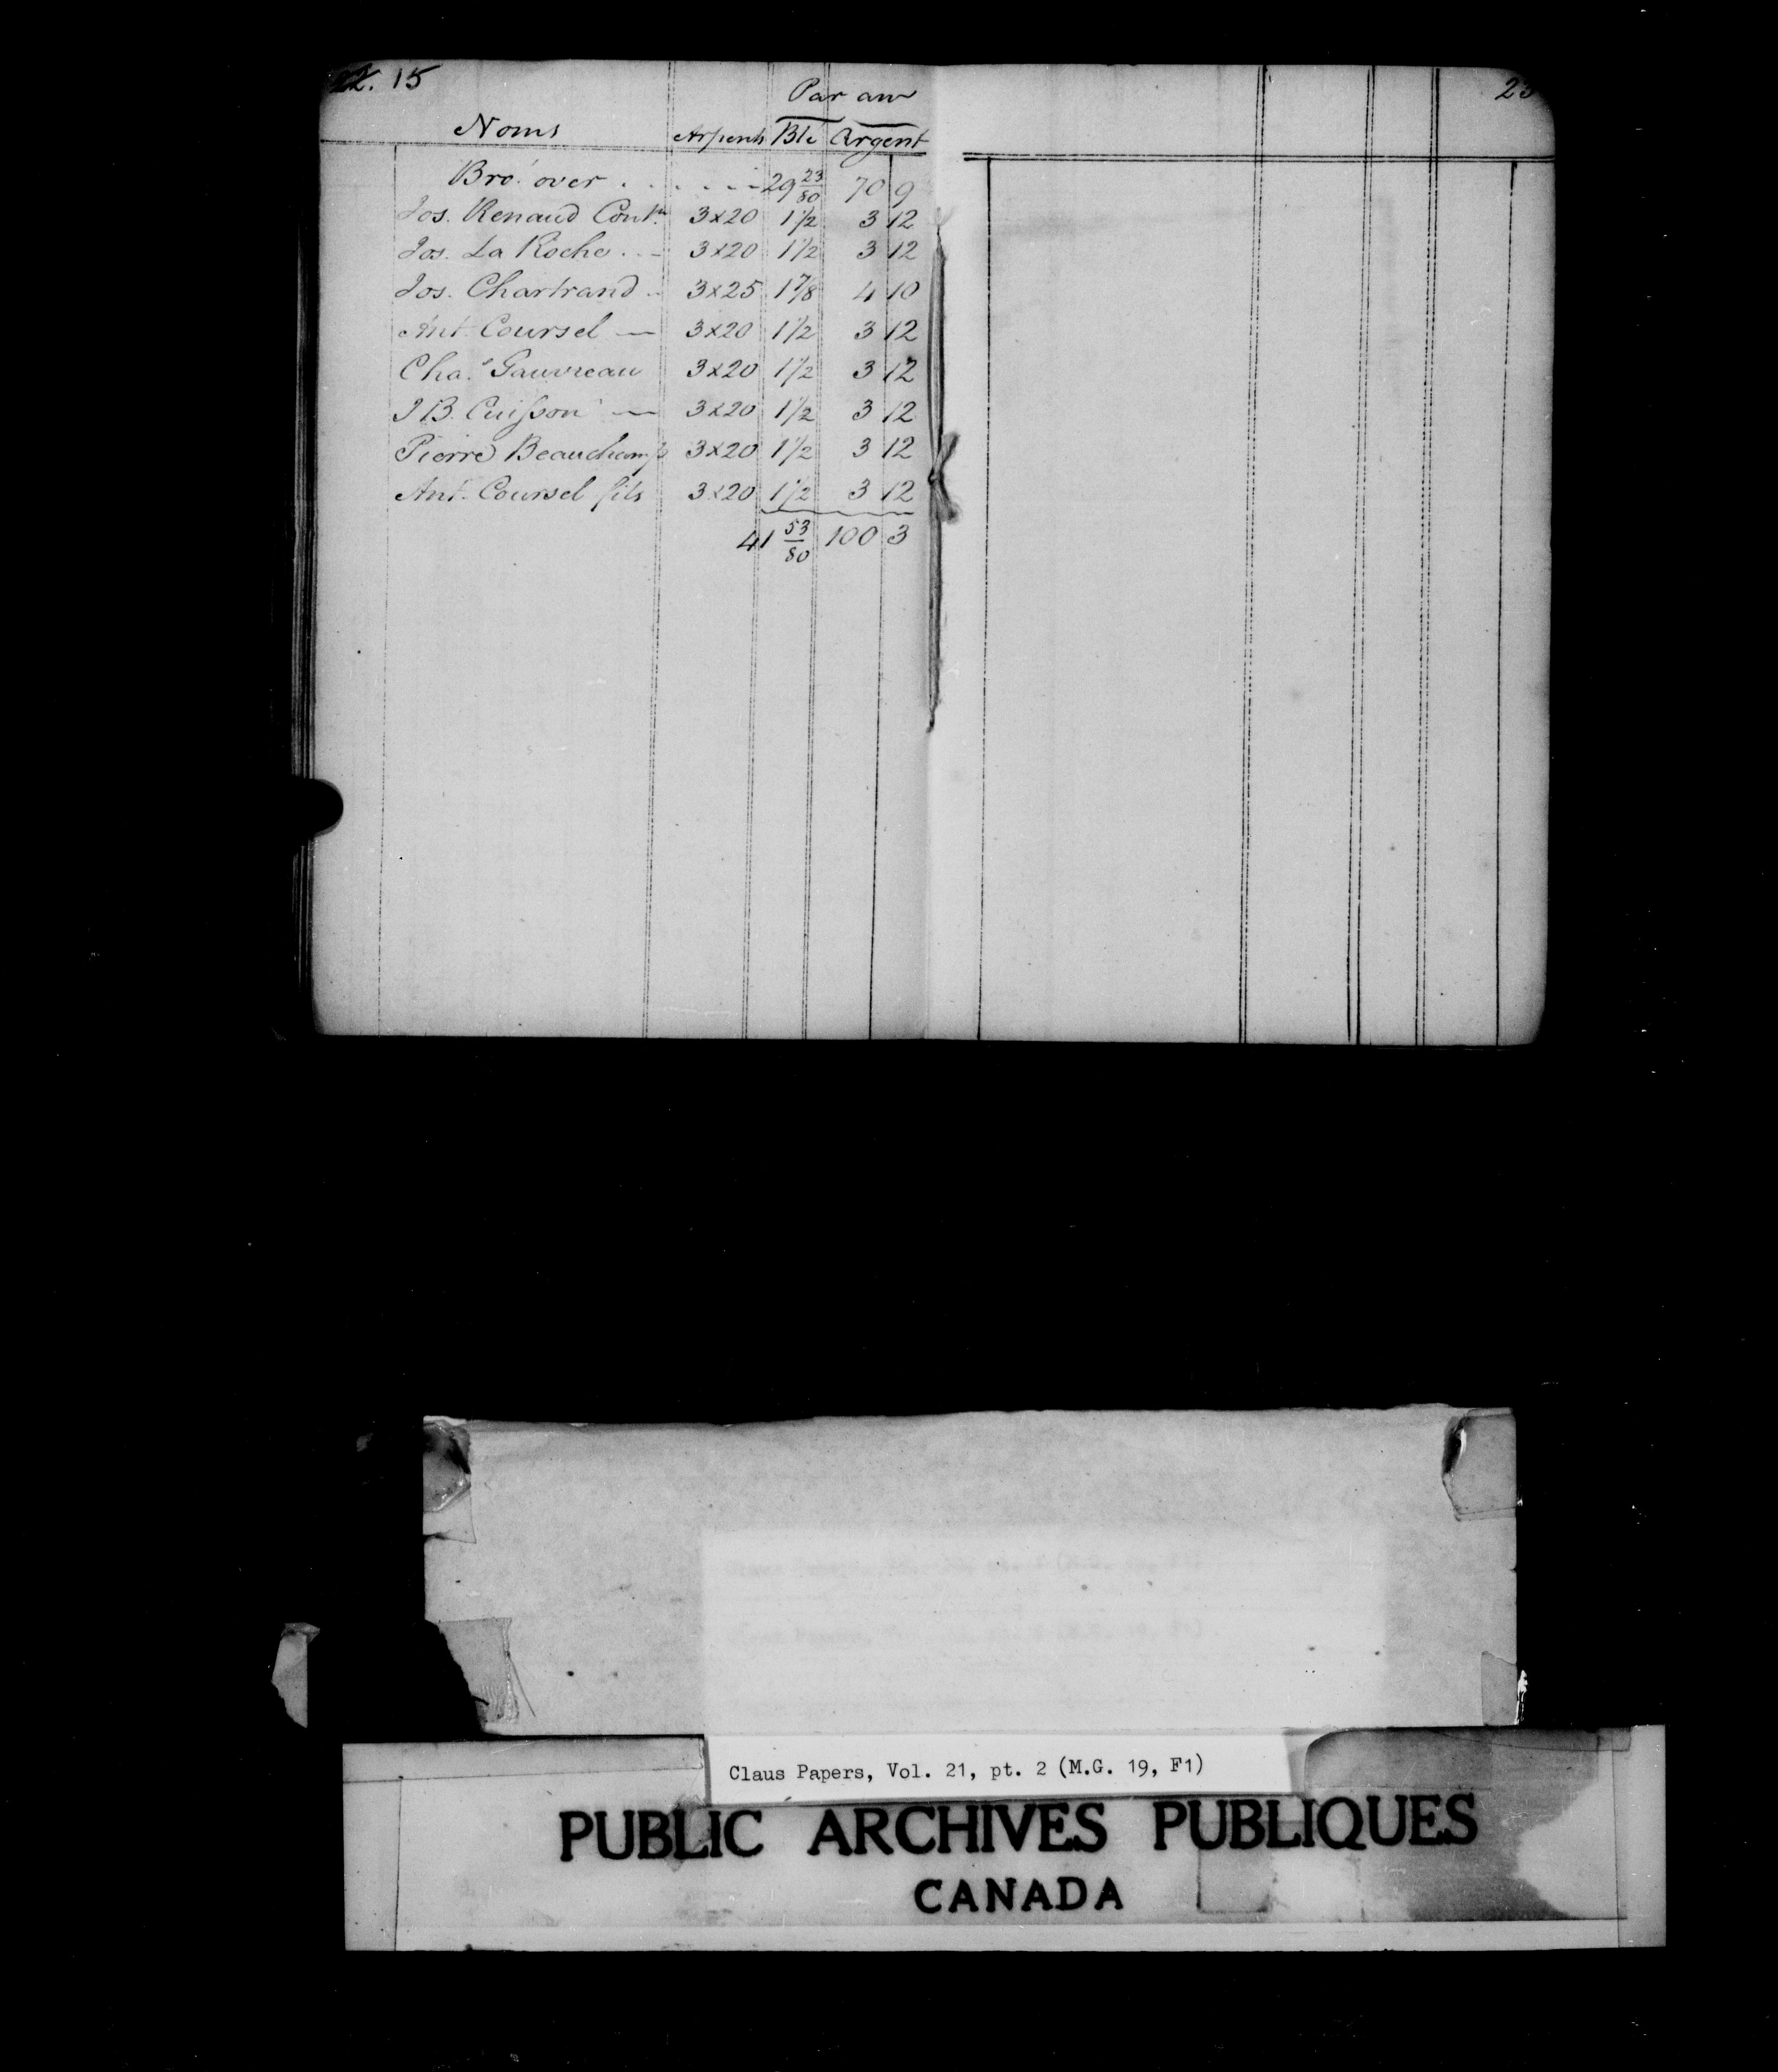 22. 15
Par an
Noms Arpents Blé Argent
Bro. over . . . . . . 29 23/80 70 9
Jos. Renaud Contr. 3x20 1 1/2 3 12
Jos. La Roche . . - 3x20 1 1/2 3 12
Jos. Chartrand . . 3x25 1 7/8 4 10
Ant. Coursel — 3x20 1 1/2 3 12
Chas. Gauvreau 3x20 1 1/2 3 12
J B. Cuisson — 3x20 1 1/2 3 12
Pierre Beauchamp 3x20 1 1/2 3 12
Ant. Coursel fils 3x20 1 1/2 3 12
41 53/80 100 3
23
Claus Papers, Vol. 21, pt. 2 (M.G. 19, F1)
PUBLIC ARCHIVES PUBLIQUES
CANADA